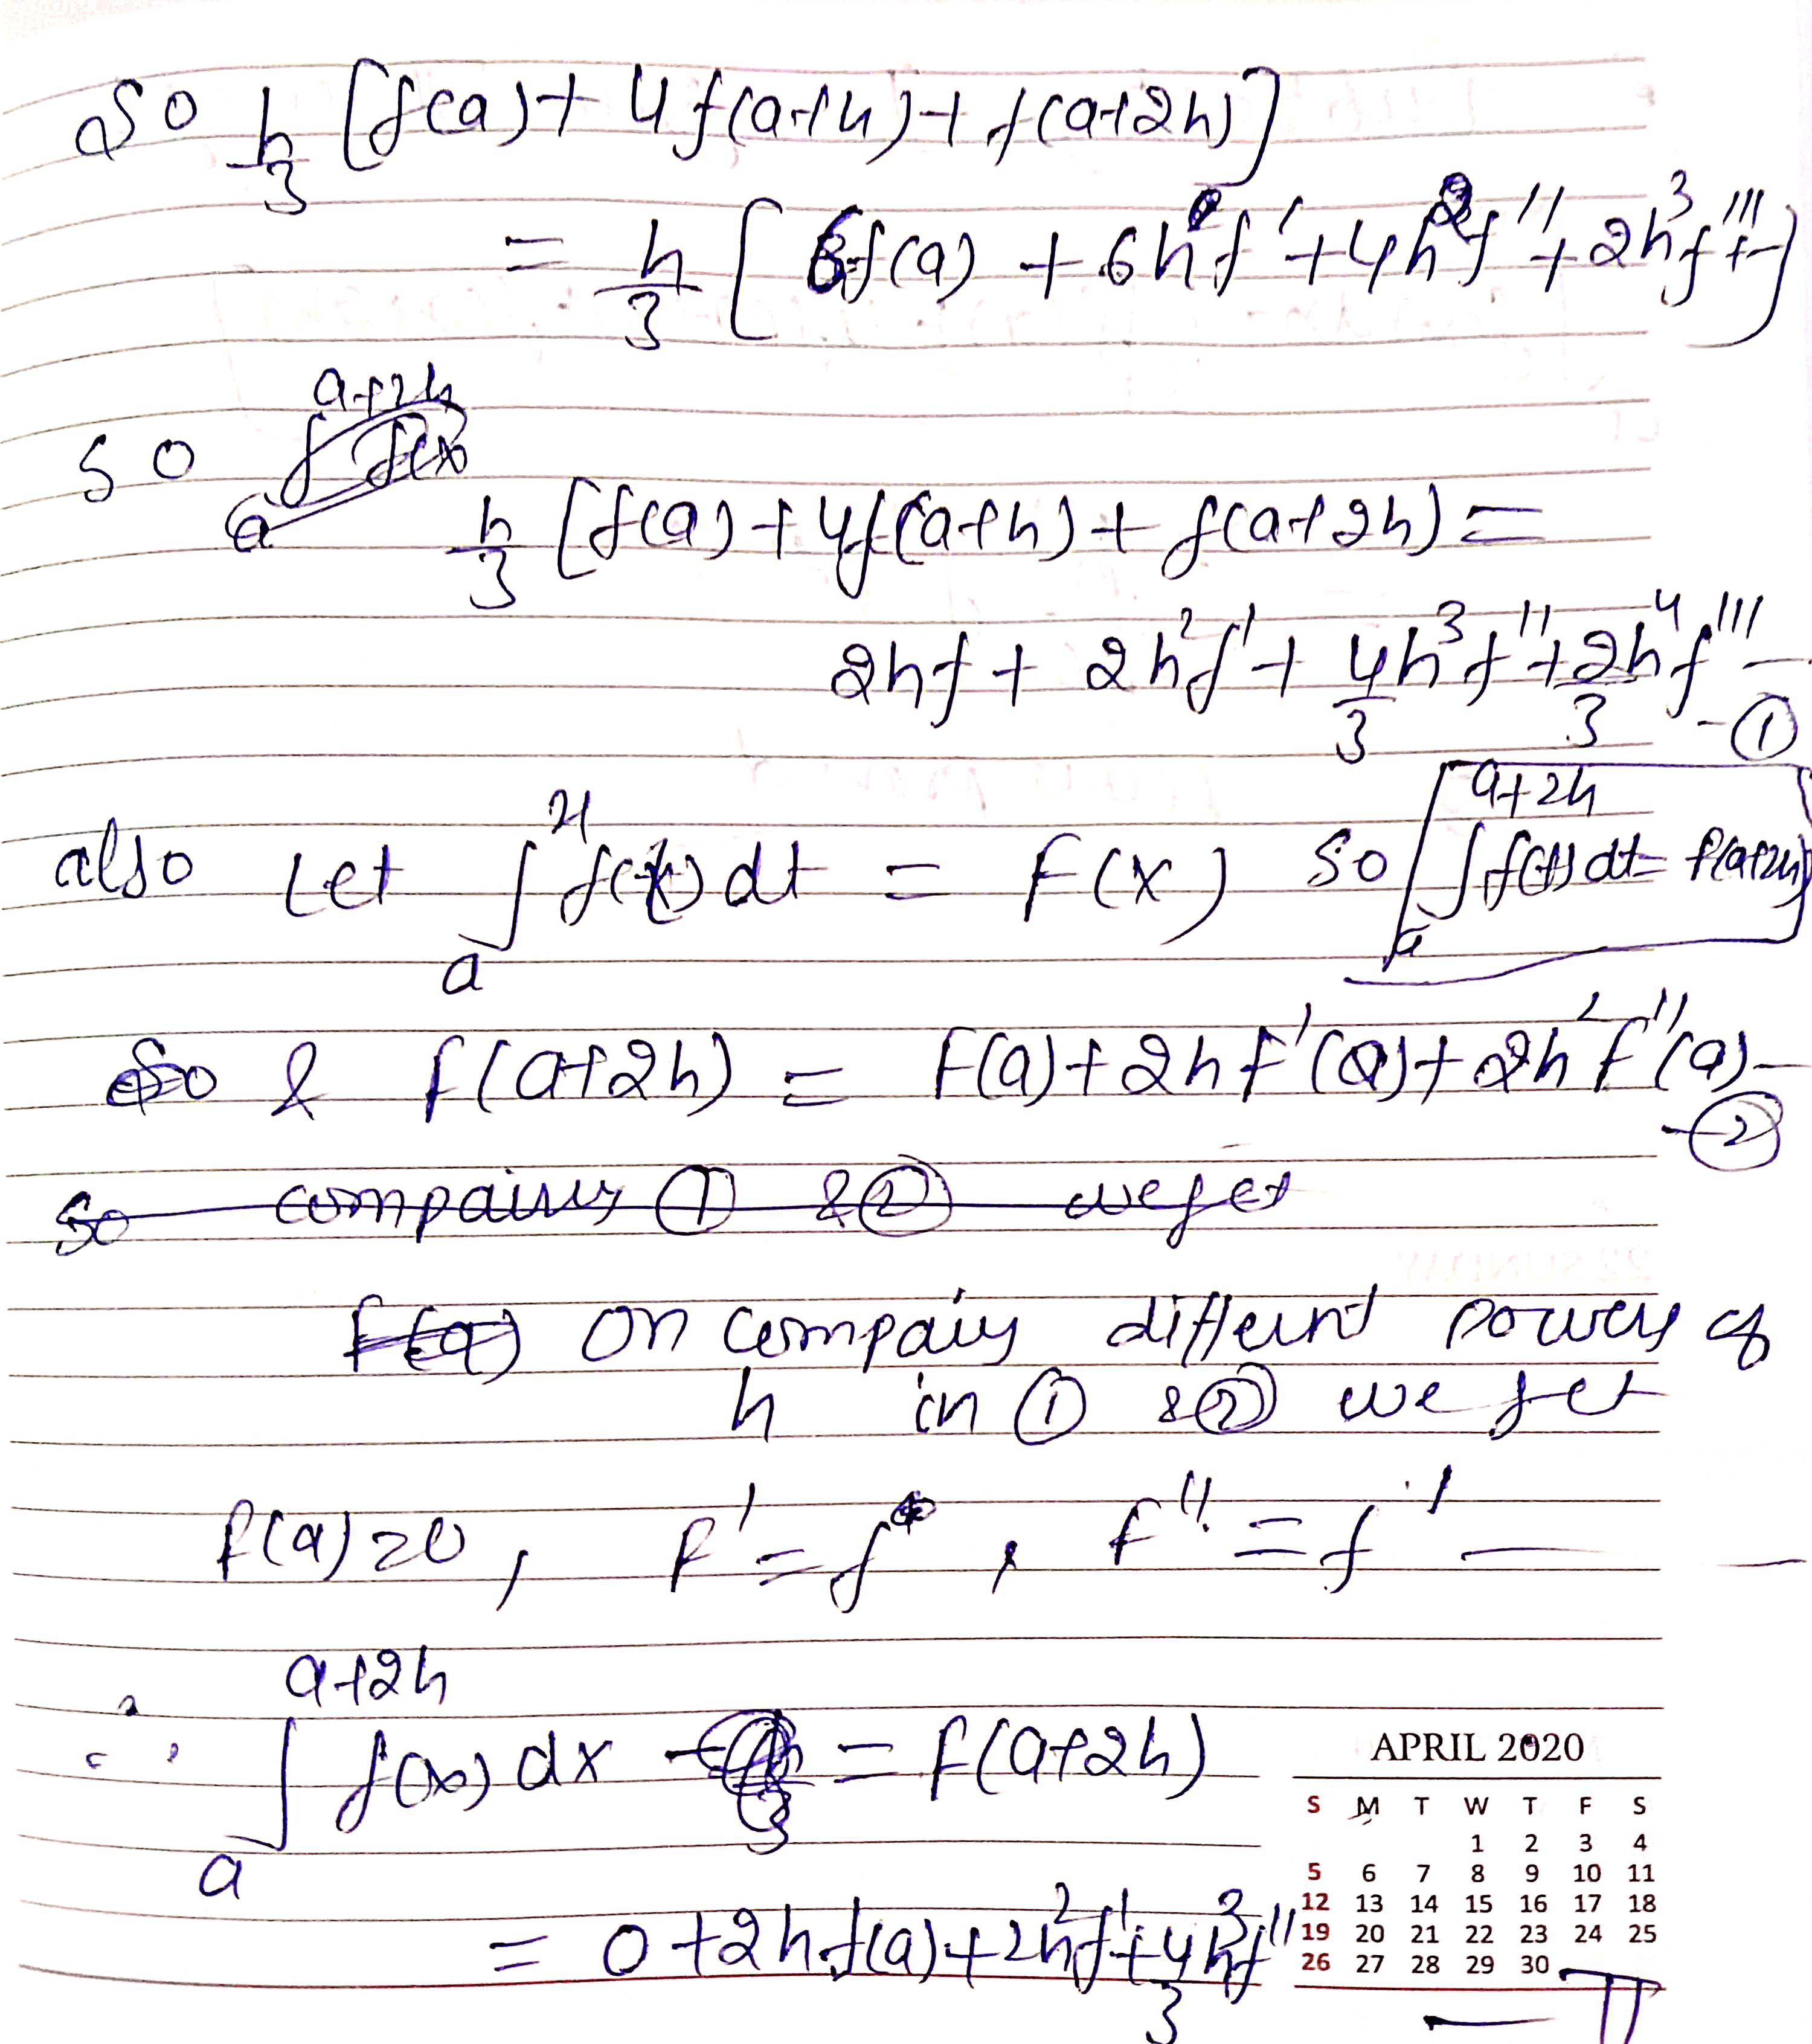 So h/3 [f(a) + 4f(a+h) + f(a+2h)]
= h/3 [6f(a) + 6hf' + 4h²f'' + 2h³f''' + -]
so
h/3 [f(a) + 4f(a+h) + f(a+2h) =
2hf + 2h²f' + 4/3 h³f'' + 2/3 h⁴f''' - - ①
also Let ∫ₐˣ f(t) dt = F(x) So ∫ₐᵃ⁺²ʰ f(t) dt = F(a+2h)
& F(a+2h) = F(a) + 2hF'(a) + 2h²F''(a) - - ②
So compairing ① & ② we get
F(a) On compairing different powers of
h in ① & ② we get
F(a) = 0, F' = f, F'' = f' — —
∴ ∫ₐᵃ⁺²ʰ f(x) dx = F(a+2h)
= 0 + 2hf(a) + 2h²f' + 4/3 h³f'' —
APRIL 2020
S M T W T F S
1 2 3 4
5 6 7 8 9 10 11
12 13 14 15 16 17 18
19 20 21 22 23 24 25
26 27 28 29 30